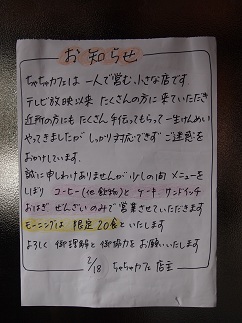 お知らせ
ちゃちゃカフェは 一人で営む 小さな店です
テレビ放映以来 たくさんの方に来ていただき
近所の方にも たくさん手伝ってもらって 一生けんめい
やってきましたが しっかり対応できず ご迷惑を
おかけしています。
誠に申しわけありませんが 少しの間 メニューを
しぼり コーヒー(他飲物)と ケーキ サンドイッチ
おはぎ ぜんざいのみで 営業させていただきます
モーニングは 限定20食といたします
よろしく 御理解と 御協力を お願いいたします
2/18 ちゃちゃカフェ 店主